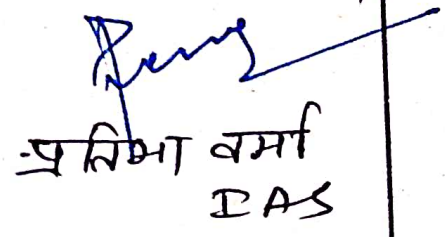 प्रतिमा वर्मा
IAS